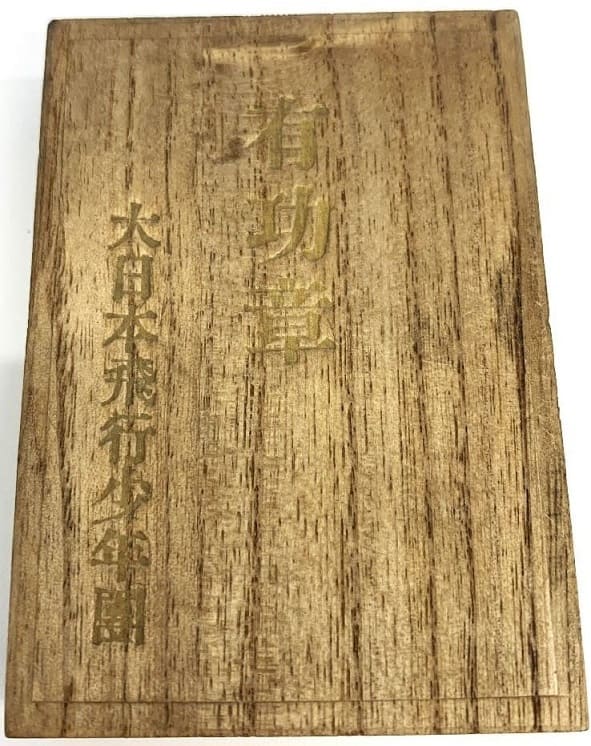 有功章
大日本飛行少年團